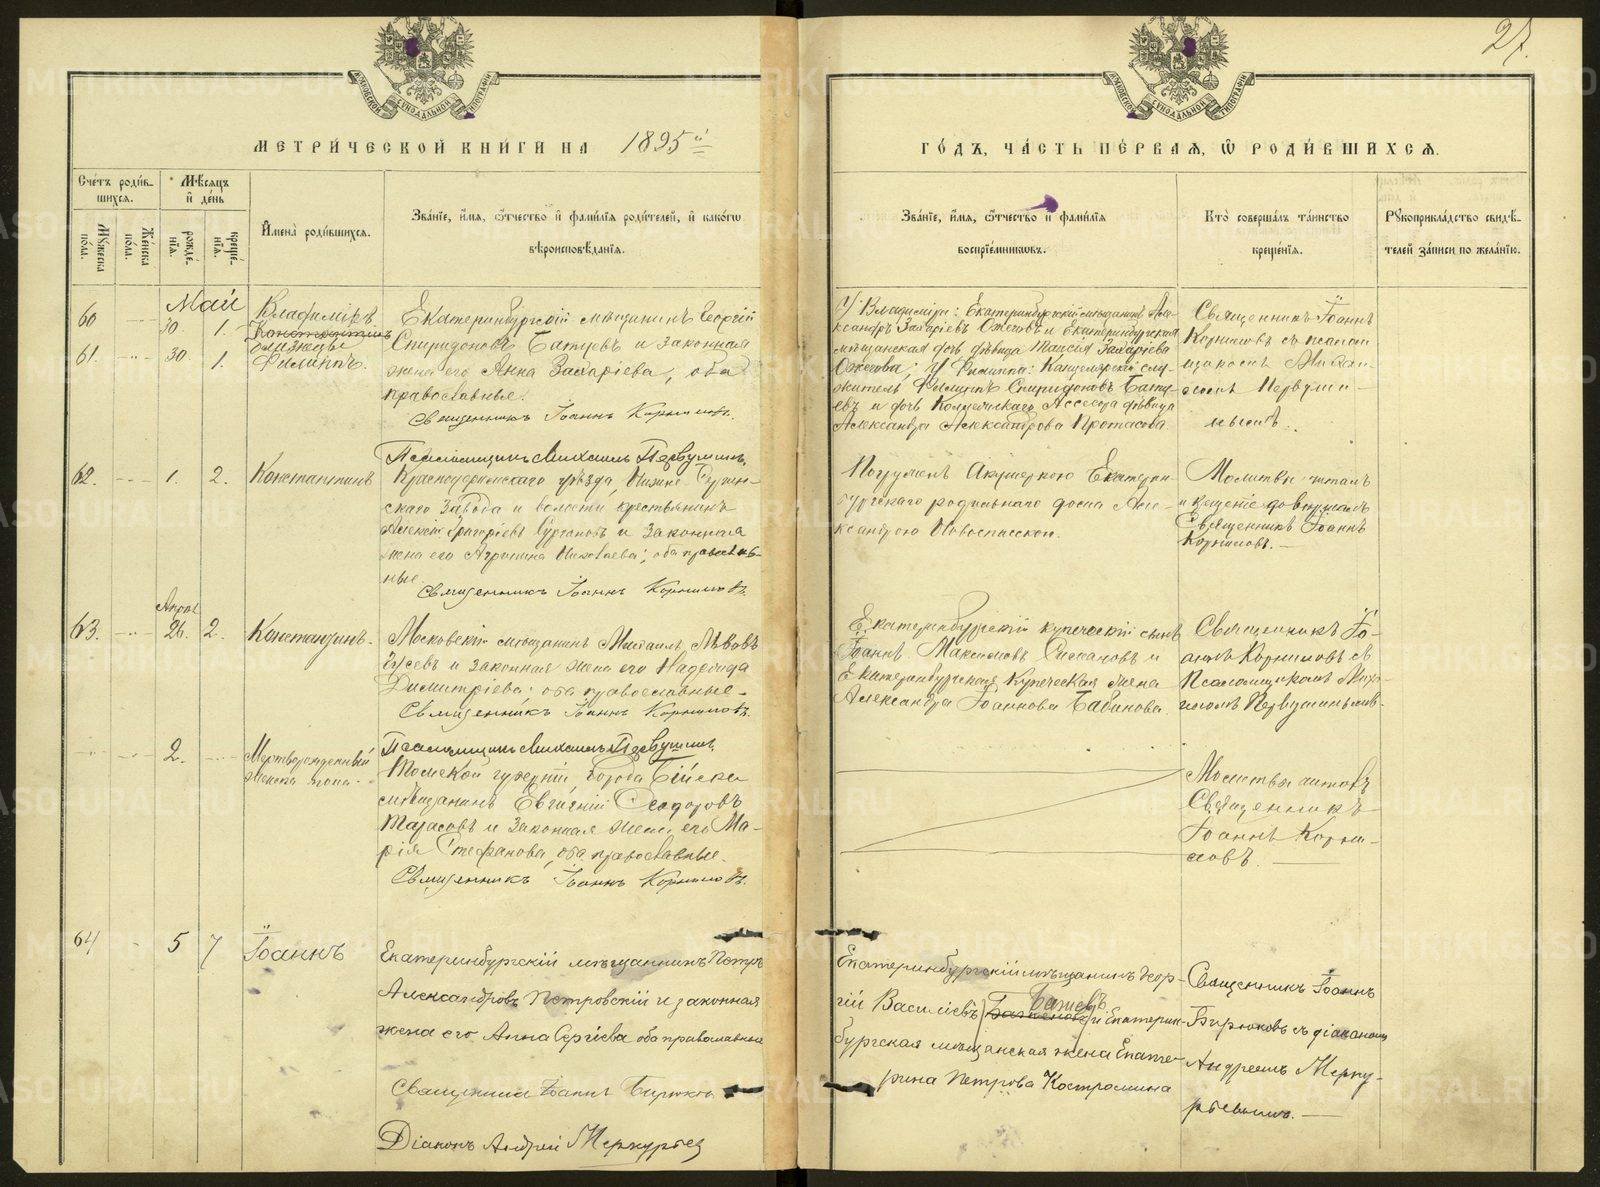 27.
МЕТРИЧЕСКОЙ КНИГИ НА 1895й
ГОДЪ, ЧАСТЬ ПЕРВАЯ, Ѡ РОДИВШИХСЯ.
Счетъ родив-
шихся.
Мужеска
пола.
Женска
пола.
Мѣсяцъ
и день
рожде-
нія.
креще-
нія.
Имена родившихся.
Званіе, имя, ѿчество и фамилія родителей, и какогѡ
вѣроисповѣданія.
Званіе, имя, ѿчество и фамилія
воспріемникѡвъ.
Кто совершалъ таинство
крещенія.
Рукоприкладство свидѣ-
телей записи по желанію.
Май
60 30. 1. Владиміръ
Близнецы
61. 30. 1. Филиппъ.
Екатеринбургскій мѣщанинъ Георгій
Спиридоновъ Батуевъ и законная
жена его Анна Захаріева, оба
православные.
Священникъ Іоаннъ Корниловъ.
Псаломщикъ Михаилъ Первушинъ.
У Владиміра: Екатеринбургскій мѣщанинъ Але-
ксандръ Захаріевъ Ожеговъ и Екатеринбургская
мѣщанская дочь дѣвица Таисія Захаріева
Ожегова; У Филиппа: Канцелярскій слу-
житель Филиппъ Спиридоновъ Бату-
евъ и дочь Коллежскаго Ассесора дѣвица
Александра Александрова Протасова
Священникъ Іоаннъ
Корниловъ съ псалом-
щикомъ Михаи-
ломъ Первуши-
нымъ.
62. 1. 2. Константинъ
Красноуфимскаго уѣзда, Нижне-Сергин-
скаго Завода и волости крестьянинъ
Алексій Григоріевъ Сургановъ и законная
жена его Агрипина Николаева; оба православ-
ные.
Священникъ Іоаннъ Корниловъ.
Погружен Акушеркою Екатерин-
бургскаго родильнаго дома Але-
ксандрою Новоспасской.
Молитвы читалъ
и крещеніе довершалъ
Священникъ Іоаннъ
Корниловъ.
Апрѣл
63. 26. 2. Константинъ.
Московскій мѣщанинъ Михаилъ Львовъ
Гусевъ и законная жена его Надежда
Димитріева; оба православные.
Священникъ Іоаннъ Корниловъ.
Псаломщикъ Михаилъ Первушинъ.
Екатеринбургскій купеческій сынъ
Іоаннъ Максимовъ и
Екатеринбургская Купеческая жена
Александра Іоаннова Бабинова.
Священникъ Іо-
аннъ Корниловъ съ
Псаломщикомъ Миха-
иломъ Первушинымъ.
2. Мертворожденный
женска пола.
Томской губерніи, города Бійска
мѣщанинъ Евгеній Ѳеодоровъ
Тарасовъ и законная жена его Ма-
рія Стефанова, оба православные.
Священникъ Іоаннъ Корниловъ.
Молитвы читалъ
Священникъ
Іоаннъ Корни-
ловъ.
64 5 7 Іоаннъ
Екатеринбургскій мѣщанинъ Петръ
Александровъ Петровскій и законная
жена его Анна Сергіева оба православные
Священникъ Іоаннъ Бирюковъ
Діаконъ Андрей Меркурьев
Екатеринбургскій мѣщанинъ Геор-
гій Василіевъ Батевъ и Екатерин-
бургская мѣщанская жена Екате-
рина Петрова Костромина
Священникъ Іоаннъ
Бирюковъ съ діакономъ
Андреемъ Мерку-
рьевымъ.
METRIKI.GASO-URAL.RU